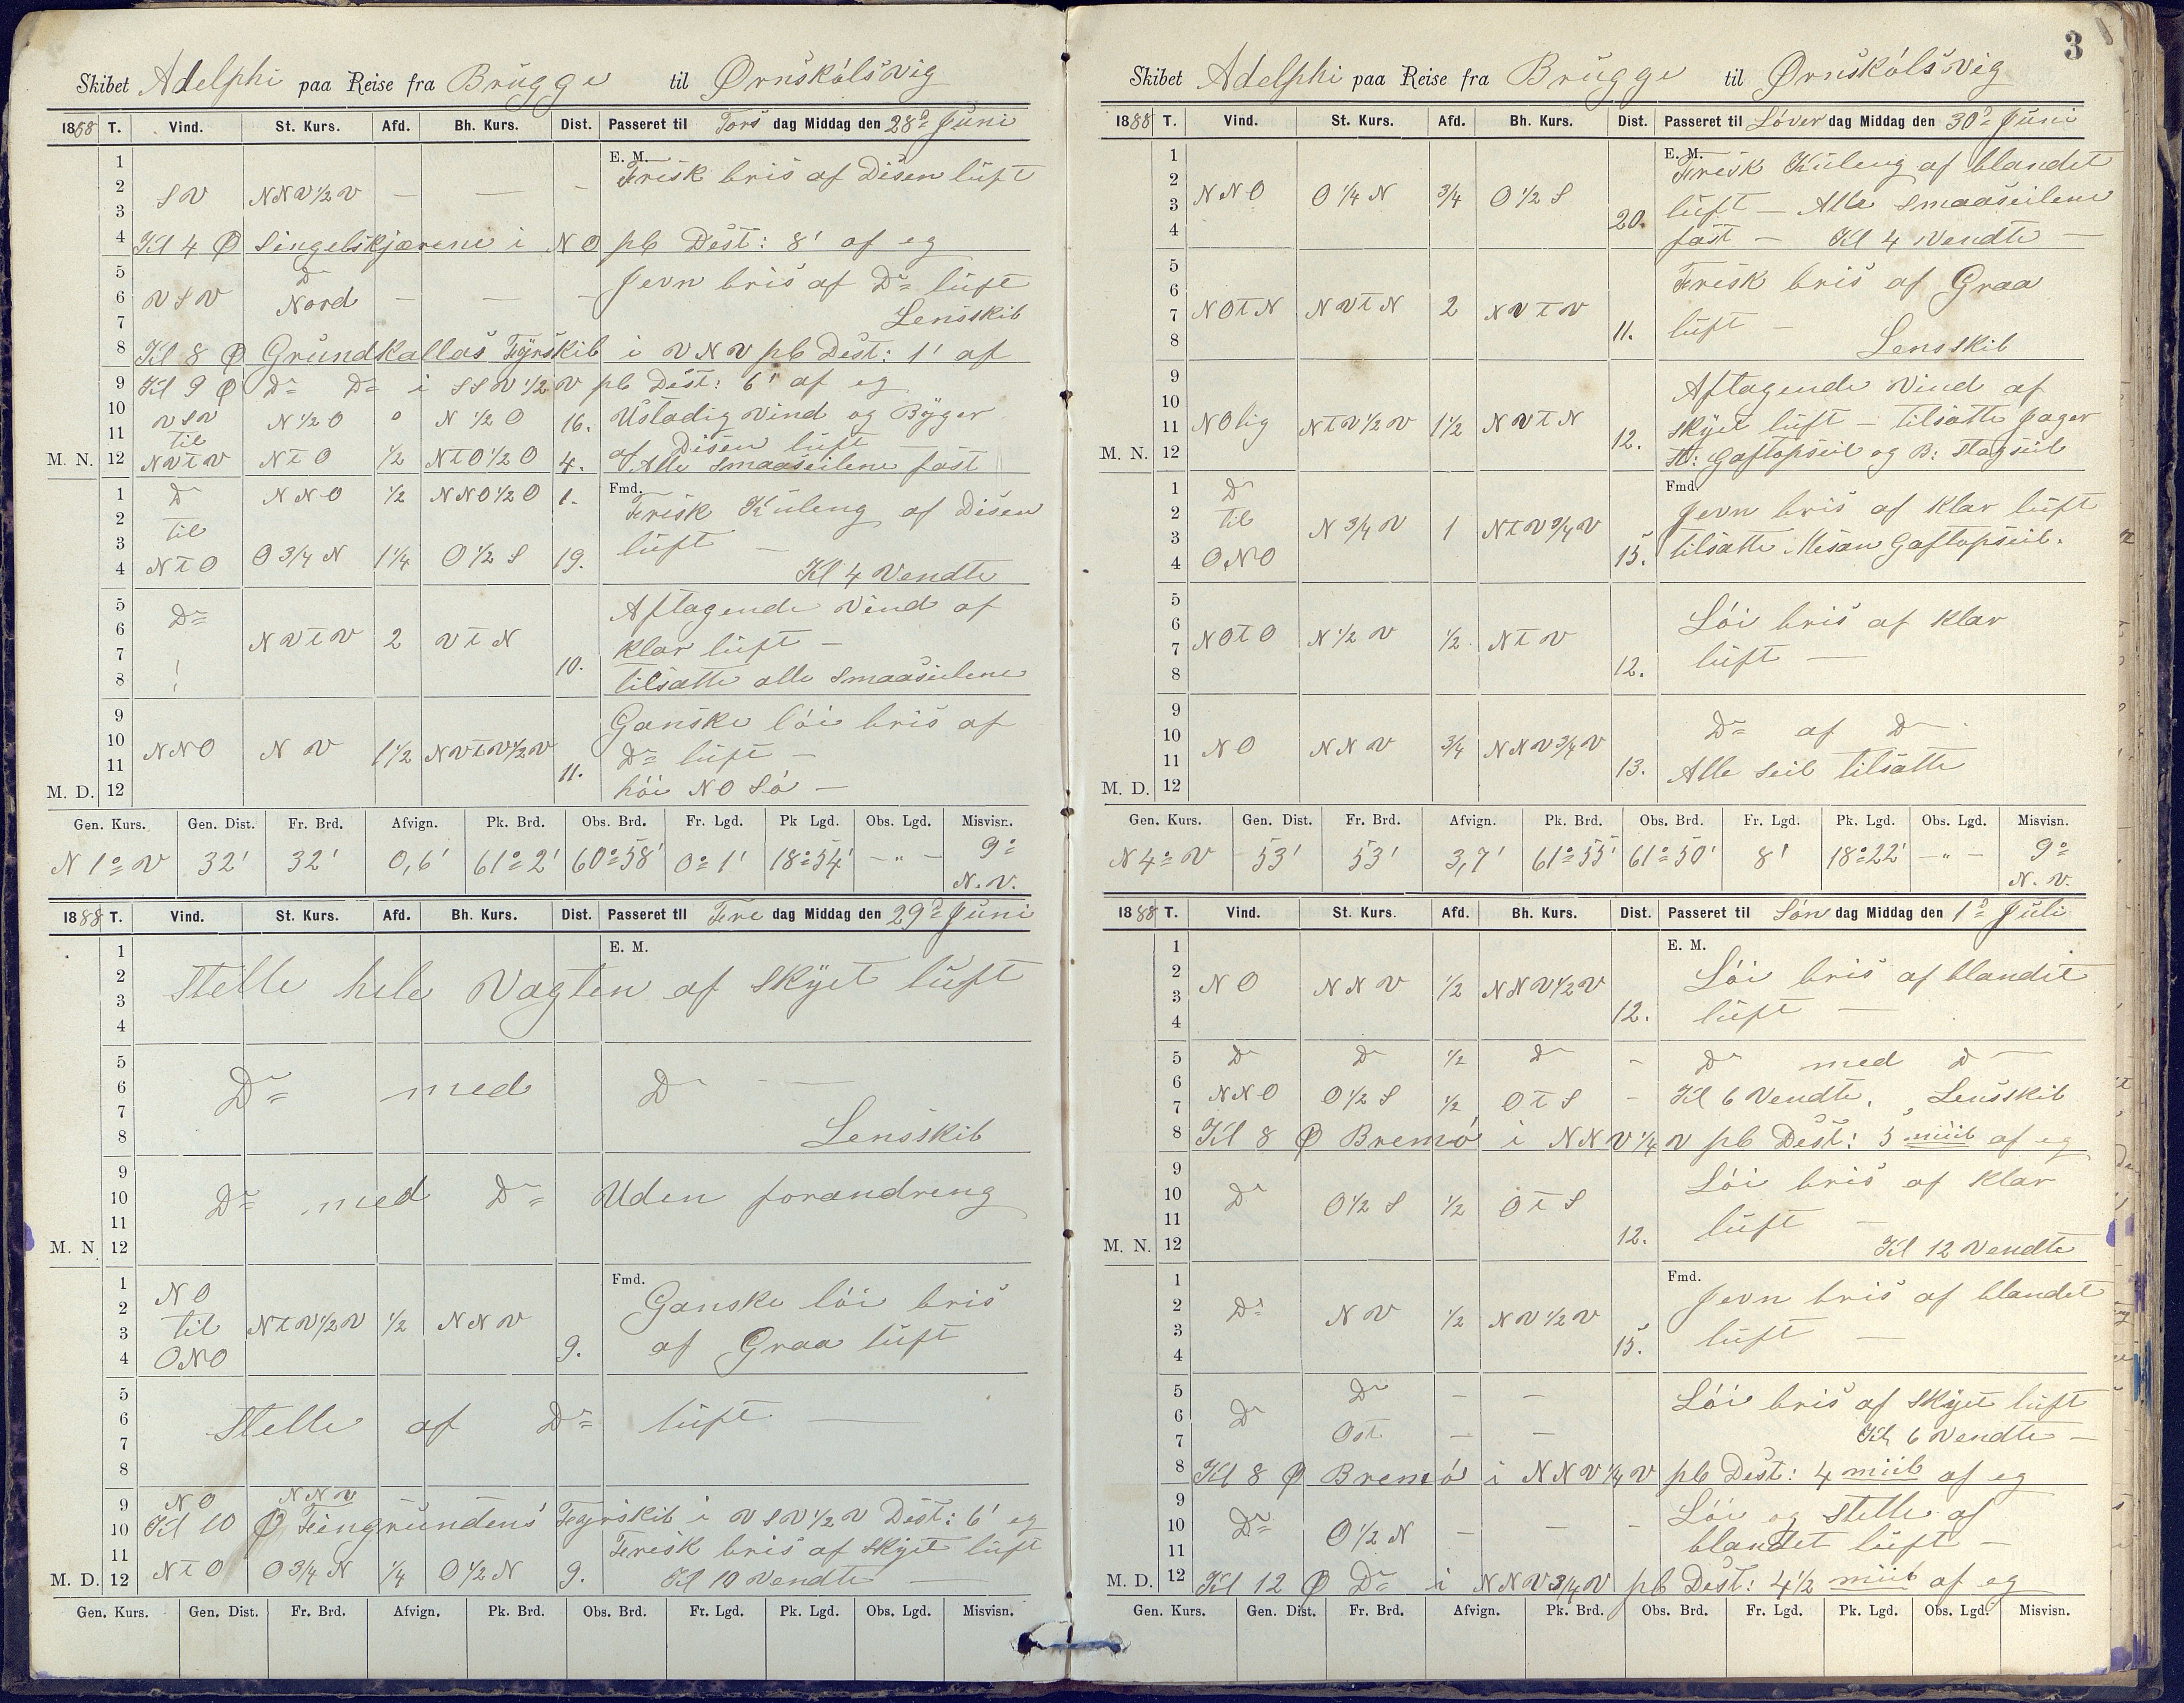 Skibet Adelphi paa Reise fra Brügge til Ørnskölsvig
1888 T. Vind. St. Kurs. Afd. Bh. Kurs. Dist. Passeret til Tors dag Middag den 28de Juni
E. M.
1
2
3
4
SV NNV½V — — - Frisk bris af Disen lüft
Kl 4 Φ Singelskjærene i NO pb Dest: 8' af eg
5
6
7
8
VSV Do Nord — — - Jevn bris af Do lüft
Lensskib
Kl 8 Φ Gründkallas Fÿrskib i VNV pb Dest: 1' af
9 Kl 9 Φ Do Do i SSV½V pb Dest: 6' af eg
10
11
M. N. 12
VSV N½O 0 N½O 16. Ustadig Vind og Bÿger
til af Disen lüft
NVTV NTO ½ NTO½O 4. Alle Smaaseilene fast
Fmd.
1
2
3
4
Do NNO ½ NNO½O 1. Frisk Küleng af Disen
til lüft —
NTO O¾N 1¼ O½S 19. Kl 4 Vendte
5
6
7
8
Do NVTV 2 VTN 10. Aftagende Vind af
klar lüft —
tilsatte alle Smaaseilene
9
10
11
M. D. 12
NNO NV 1½ NVTV½V 11. Ganske löi bris af
Do lüft —
höi NO Sö —
Gen. Kurs. Gen. Dist. Fr. Brd. Afvign. Pk. Brd. Obs. Brd. Fr. Lgd. Pk Lgd. Obs. Lgd. Misvisn.
N 1° V 32' 32' 0,6' 61° 2' 60° 58' 0° 1' 18° 54' — " — 9°
N.V.
1888 T. Vind. St. Kurs. Afd. Bh. Kurs. Dist. Passeret til Fre dag Middag den 29de Juni
E. M.
1
2
3
4
Stelle hele Vagten af Skÿet lüft
5
6
7
8
Do med Do —
Lensskib
9
10
11
M. N. 12
Do med Do Uden forandreng
Fmd.
1
2
3
4
NO Ganske löi bris
til NTV½V ½ NNV
ONO 9. af Graa lüft
5
6
7
8
Stelle af Do lüft —
9 NO NNV — — -
10 Kl 10 Φ Fingründens Fÿrskib i VSV½V Dest: 6' eg
11 Frisk bris af Skÿet lüft
M. D. 12 NTO O¾N ¼ O½N 9. Kl 10 Vendte —
Gen. Kurs. Gen. Dist. Fr. Brd. Afvign. Pk. Brd. Obs. Brd. Fr. Lgd. Pk. Lgd. Obs. Lgd. Misvisn.
3
Skibet Adelphi paa Reise fra Brügge til Ørnskölsvig
1888 T. Vind. St. Kurs. Afd. Bh. Kurs. Dist. Passeret til Löver dag Middag den 30de Juni
E. M.
1
2
3
4
NNO O¼N ¾ O½S 20. Frisk Küleng af blandet
lüft — Alle Smaaseilene
fast — Kl 4 Vendte —
5
6
7
8
NOTN NVTN 2 NVTV 11. Frisk bris af Graa
lüft —
Lensskib
9
10
11
M. N. 12
NOlig NTV½V 1½ NVTN 12. Aftagende Vind af
Skÿet lüft — tilsatte Jager
St: Gaftopseil og B: Stagseil
Fmd.
1
2
3
4
Do
til N¾V 1 NTV¾V 15. Jevn bris af klar lüft
ONO tilsatte Mesan Gaftopseil.
5
6
7
8
NOTO N½V ½ NTV 12. Löi bris af klar
lüft —
9
10
11
M. D. 12
NO NNV ¾ NNV¾V 13. Do af Do
Alle Seil tilsatte
Gen. Kurs. Gen. Dist. Fr. Brd. Afvign. Pk. Brd. Obs. Brd. Fr. Lgd. Pk. Lgd. Obs. Lgd. Misvisn.
N 4° V 53' 53' 3,7' 61° 55' 61° 50' 8' 18° 22' — " — 9°
N.V.
1888 T. Vind. St. Kurs. Afd. Bh. Kurs. Dist. Passeret til Sön dag Middag den 1de Juli
E. M.
1
2
3
4
NO NNV ½ NNV½V 12. Löi bris af blandet
lüft —
5 Do Do ½ Do - Do med Do —
6
7 NNO O½S ½ OTS - Kl 6 Vendte. Lensskib
8 Kl 8 Φ Bremö i NNV¼V pb Dest: 5 miil af eg
9
10
11
M. N. 12
Do O½S ½ OTS 12. Löi bris af klar
lüft —
Kl 12 Vendte
Fmd.
1
2
3
4
Do NV ½ NV½V 15. Jevn bris af blandet
lüft —
5
6
7
Do Do — — Löi bris af Skÿet lüft
Ost — — Kl 6 Vendte —
8 Kl 8 Φ Bremö i NNV¼V pb Dest: 4 miil af eg
9
10
11
Do O½N — — - Löi og Stelle af
blandet lüft —
M. D. 12 Kl 12 Φ Do i NNV¾V pb Dest: 4½ miil af eg
Gen. Kurs. Gen. Dist. Fr. Brd. Afvign. Pk. Brd. Obs. Brd. Fr. Lgd. Pk. Lgd. Obs. Lgd. Misvisn.